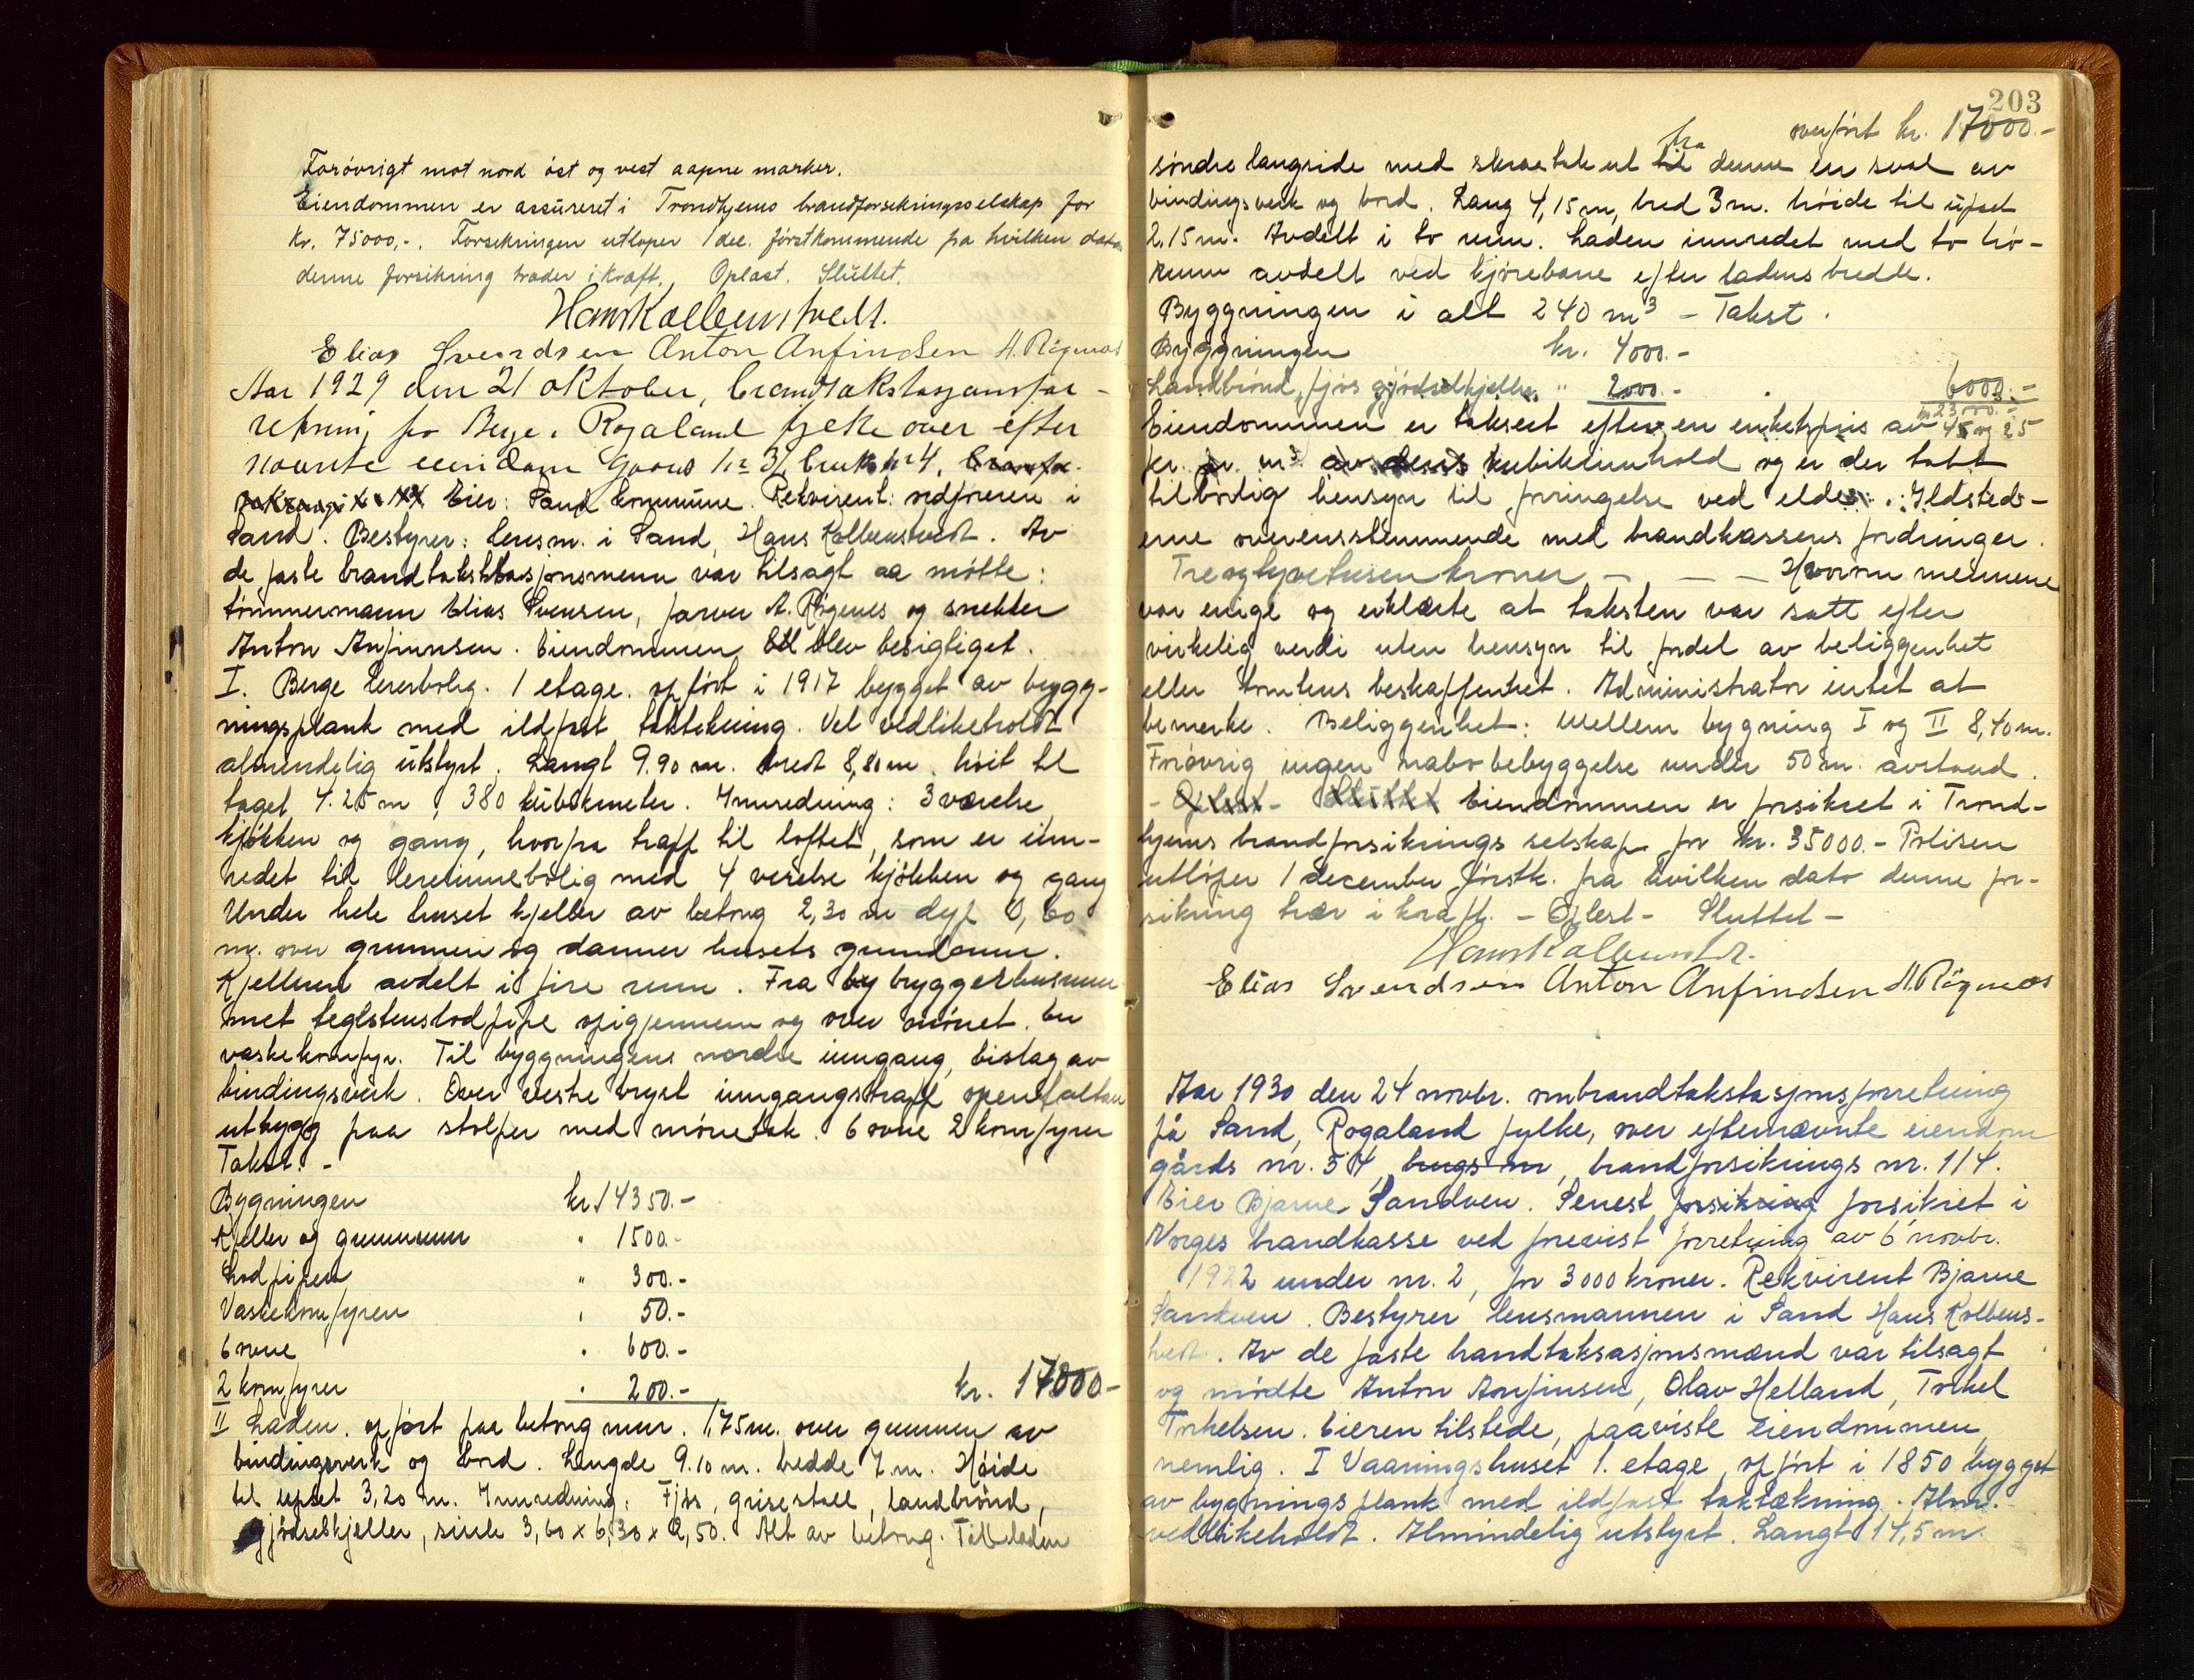 Forøvrigt mot nord øst og vest aapne marker.
Eiendommen er assureret i Trondhjems brandforsekringsselskap for
Kr. 75000,-. Forsekringen utløper 1 dec. førstkommende fra hvilken dato
denne forsikring træder i kraft. Oplæst. Sluttet.
Hans Kolbenstvedt.
Elias Svendsen Anton Anfindsen A. Røgenes
Aar 1929 den 21 oktober, brandtakstasjonsfor-
retning for Berge i Rogaland fylke over efter
nevnte eiendom gaards nr 31 bruks nr 4.
Eier: Sand kommune. Rekvirent: ordføreren i
Sand. Bestyrer: lensm. i Sand, Hans Kolbenstvedt. Av
de faste brandtakstasjonsmenn var tilsagt aa møtte:
tømmermann Elias Svensen, farver A. Røgenes og snekker
Anton Anfinnsen. Eiendommen blev besigtiget.
I. Berge lærerbolig. 1 etage. opført i 1917 bygget av bygg-
ningsplank med ildfast taktekning. Vel vedlikeholdt
almendelig utstyrt. Langt 9.90 m. bredt 8,80 m. høit til
taget 4.25 m, 380 kubikmeter. Innredning: 3 værelse
kjøkken og gang, hvorfra trapp til loftet, som er inn-
redet til lererinnebolig med 4 verelse kjøkken og gang
Under hele huset kjeller av betong 2,30 m dyp 0,60
m. over grunnen og danner husets grundmur.
Kjelleren avdelt i fire rum. Fra by bryggerhusrum-
met teglstenslodpipe opigjennem og over mønet. En
vaskekomfyr. Til byggningens nordre inngang, bislag av
bindingsverk. Over vestre bryst inngangstrapp open altan
utbygg paa stolper med mønetak. 6 ovne 2 komfyrer
Takst. -
Bygningen kr. 14350.-
Kjeller og grunnmur " 1500.-
Lodpipen " 300.-
Vaskekomfyren " 50.-
6 ovne " 600.-
2 komfyrer " 200.- kr. 17000.-
II Laden. opført paa betong mur. 1,75 m. over grunnen av
bindingsverk og bord. Lengde 9.10 m. bredde 7 m. Høide
til upset 3,20 m. Innredning: Fjøs, grisestall, landbrønd,
gjødselkjeller, 3,60 x 6,30 x 2,50. Alt av betong. Til laden
203
overført kr. 17000.-
søndre langside med skraatak ut til fra denne en sval av
bindingsverk og bord. Lang 4,15 m, bred 3 m. høide til upset
2,15 m. Avdelt i to rum. Laden innredet med to hø-
rum avdelt ved kjørebane efter ladens bredde.
Byggningen i alt 240 m³ - Takst.
Byggningen kr. 4000.-
Landbrønd, fjøs gjødselkjeller " 2000.- 6000.-
kr. 23000.-
Eiendommen er taksert efter en enhetspris av 45 og 25
kr. pr. m³ kubikinnhold og er der tatt
tilbørlig hensyn til forringelse ved elde. Ildsted-
erne overensstemmende med brandkassens fordringer.
Treogtyvetusen kroner - — — Hvorom mennene
var enige og erklærte at taksten var satt efter
virkelig verdi uten hensyn til fordel av beliggenhet
eller tomtens beskaffenhet. Administrator intet at
bemerke. Beliggenhet: Mellem bygning I og II 8,40 m.
Forøvrig ingen nabobebyggelse under 50 m. avstand.
- Oplest - Sluttet Eiendommen er forsikret i Trond-
hjems brandforsikrings selskap for kr. 35000.- Polisen
utløper 1 december førstk. fra hvilken dato denne for-
sikring trær i kraft. - Oplest - Sluttet -
Hans Kolbenstvedt.
Elias Svendsen Anton Anfindsen A. Røgenes
Aar 1930 den 24 novbr. ombrandtakstasjonsforretning
på Sand, Rogaland fylke, over efternævnte eiendom
gårds nr. 54, brugs nr, brandforsikrings nr. 114.
Eier Bjarne Sandven. Senest forsikring forsikret i
Norges brandkasse ved forevist forretning av 6 novbr.
1922 under nr. 2, for 3000 kroner. Rekvirent Bjarne
Sandven. Bestyrer lensmannen i Sand Hans Kolbens-
tvedt. Av de faste brandtaksasjonsmænd var tilsagt
og mødte Anton Anfinsen, Olav Helland, Torkel
Torkelsen. Eieren tilstede, paaviste eiendommen,
nemlig. I Vaaningshuset 1. etage, opført i 1850 bygget
av bygningsplank med ildfast taktækning. Alm.
vedlikeholdt. Almindelig utstyrt. Langt 14,5 m.